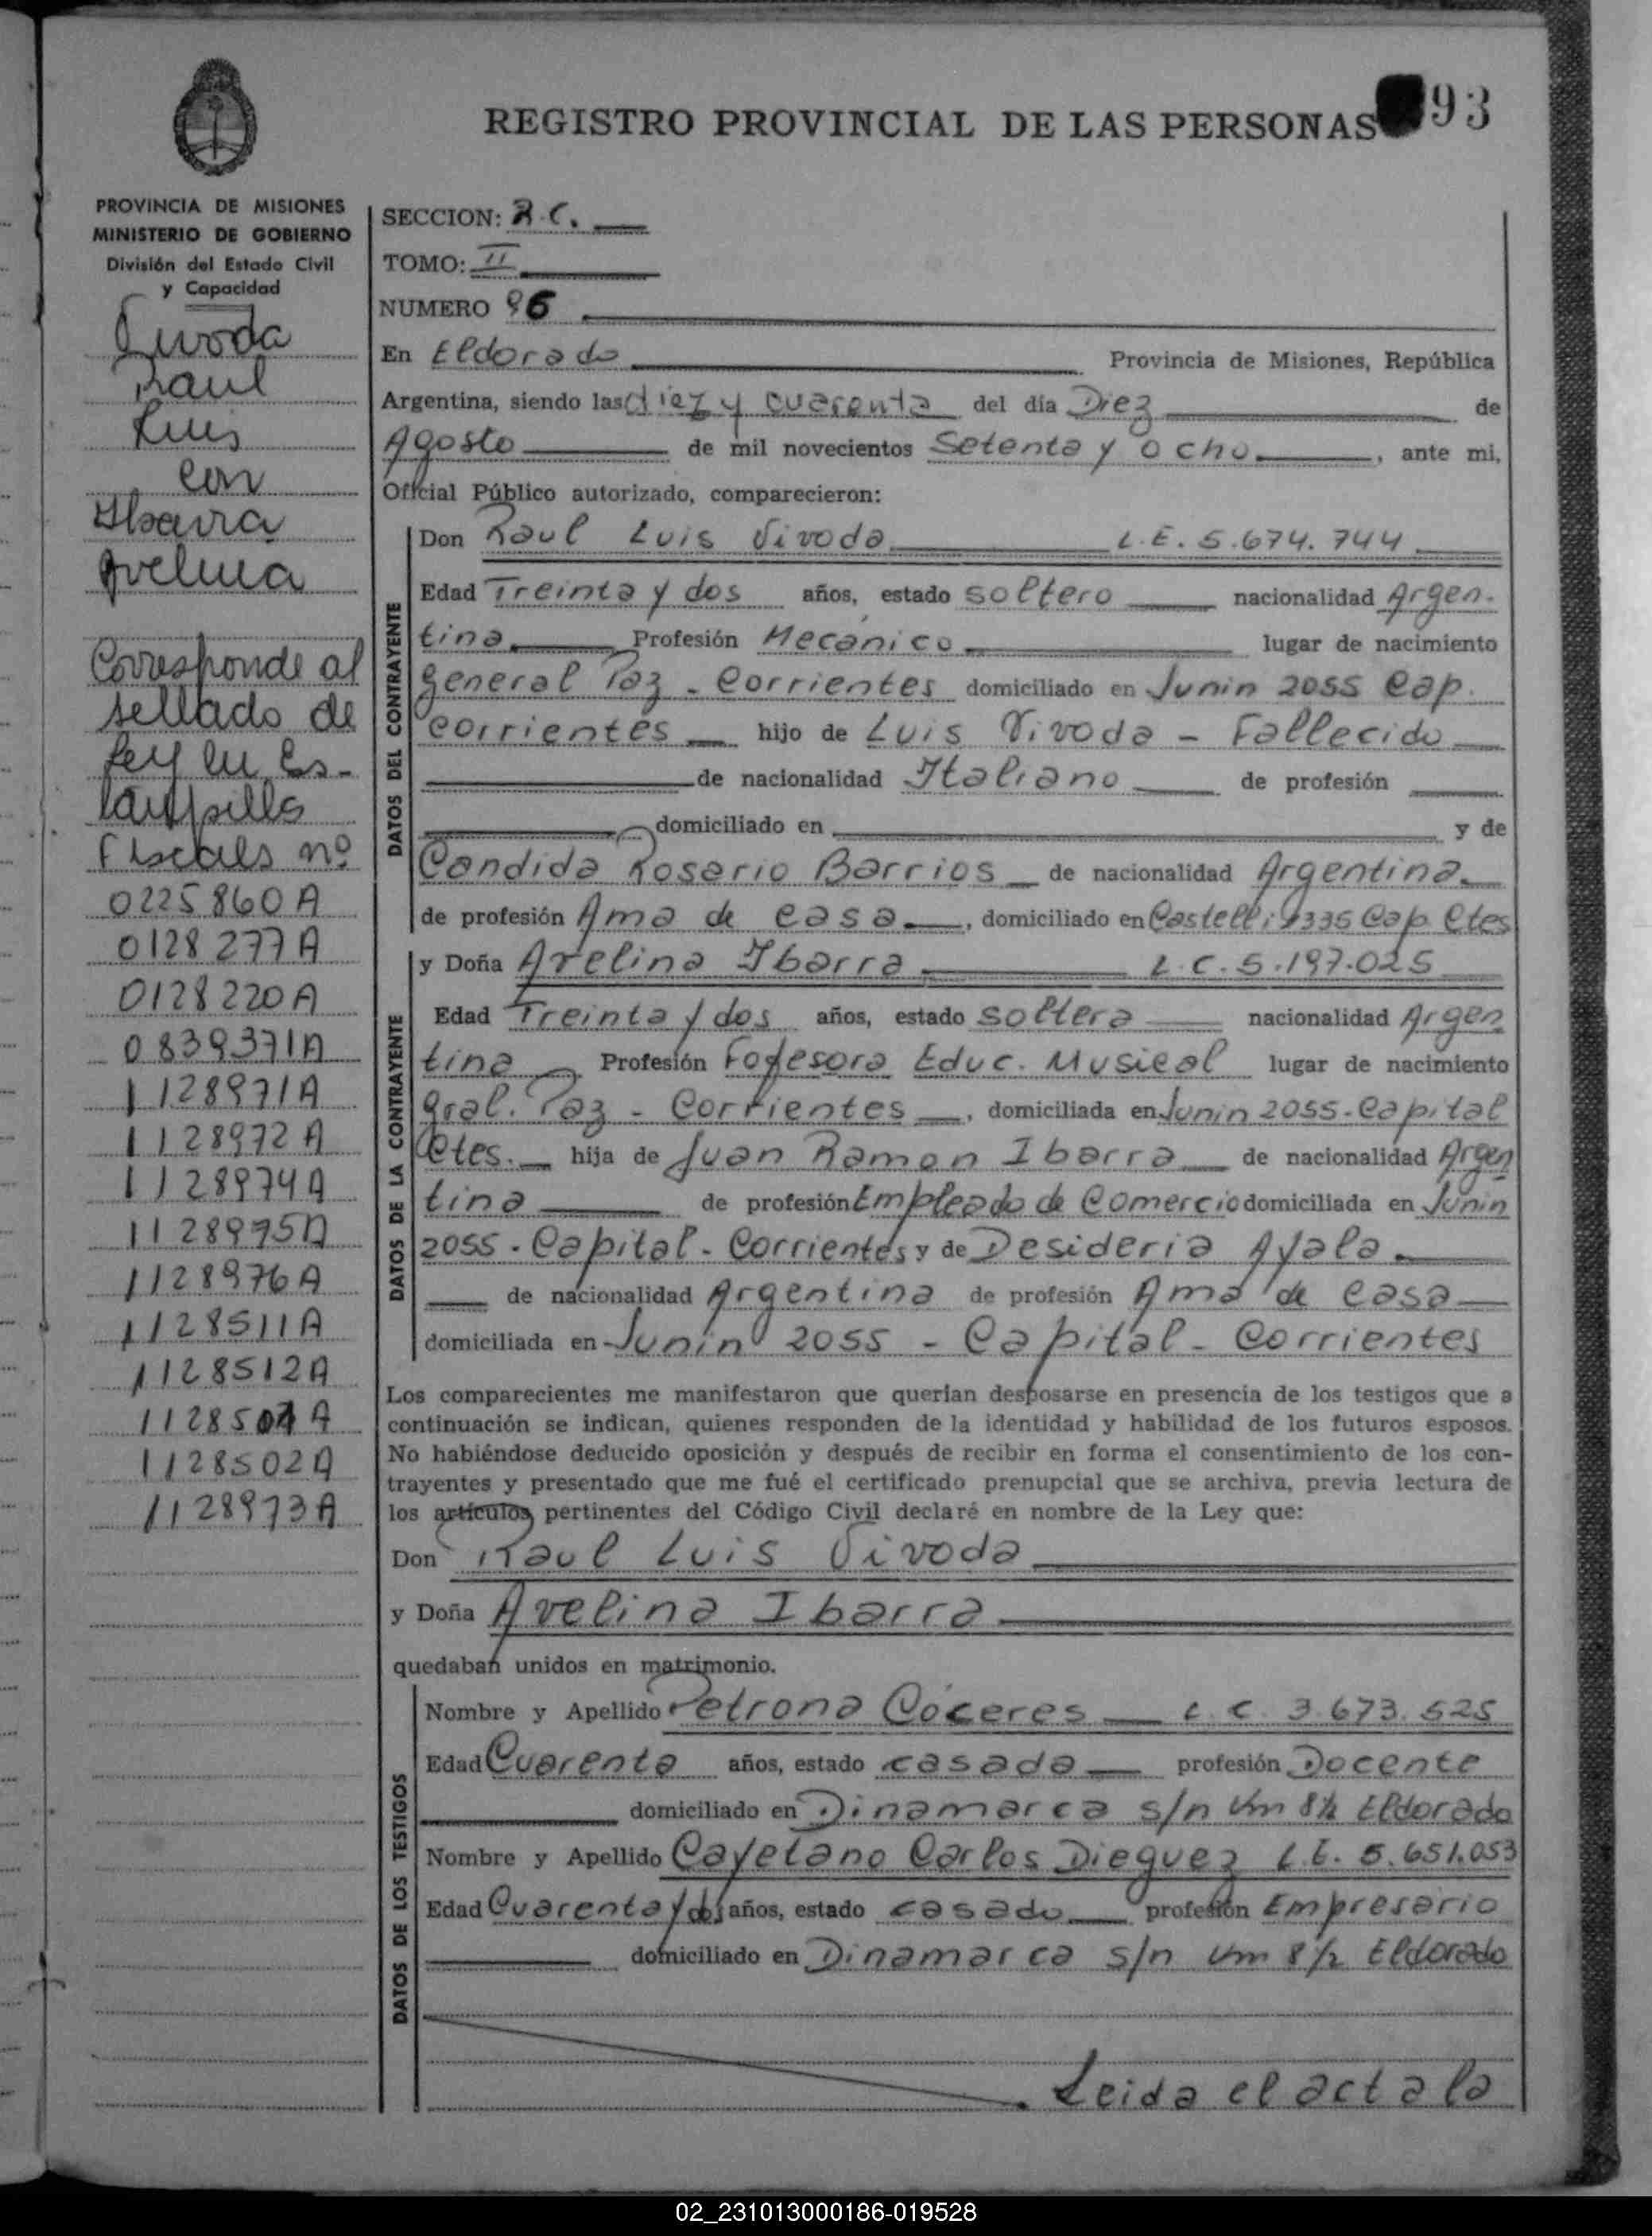 93
REGISTRO PROVINCIAL DE LAS PERSONAS
PROVINCIA DE MISIONES
MINISTERIO DE GOBIERNO
División del Estado Civil
y Capacidad
Vivoda
Raul
Luis
con
Ibarra
Avelina
Corresponde al
sellado de
Ley en Es-
tampillas
Fiscales nº
0225860A
0128277A
0128220A
0839371A
1128971A
1128972A
1128974A
1128975A
1128976A
1128511A
1128512A
1128501A
1128502A
1128973A
SECCION: R.C.
TOMO: II
NUMERO 96
En Eldorado Provincia de Misiones, República
Argentina, siendo las diez y cuarenta del día Diez de
Agosto de mil novecientos Setenta y Ocho, ante mi,
Oficial Público autorizado, comparecieron:
DATOS DEL CONTRAYENTE
Don Raul Luis Vivoda L.E. 5.674.744
Edad Treinta y dos años, estado soltero nacionalidad Argen-
tina Profesión Mecánico lugar de nacimiento
General Paz - Corrientes domiciliado en Junin 2055 Cap.
Corrientes hijo de Luis Vivoda - Fallecido
de nacionalidad Italiano de profesión
domiciliado en y de
Candida Rosario Barrios de nacionalidad Argentina
de profesión Ama de casa, domiciliado en Castelli 1335 Cap. Ctes
DATOS DE LA CONTRAYENTE
y Doña Avelina Ibarra L.C. 5.197.025
Edad Treinta y dos años, estado soltera nacionalidad Argen
tina Profesión Educ. Musical lugar de nacimiento
Gral. Paz - Corrientes, domiciliada en Junin 2055 - Capital
Ctes. hija de Juan Ramon Ibarra de nacionalidad Argen
tina de profesión Empleado de Comercio domiciliada en Junin
2055 - Capital - Corrientes y de Desideria Ayala
de nacionalidad Argentina de profesión Ama de casa
domiciliada en Junin 2055 - Capital - Corrientes
Los comparecientes me manifestaron que querían desposarse en presencia de los testigos que a
continuación se indican, quienes responden de la identidad y habilidad de los futuros esposos.
No habiéndose deducido oposición y después de recibir en forma el consentimiento de los con-
trayentes y presentado que me fué el certificado prenupcial que se archiva, previa lectura de
los artículos pertinentes del Código Civil declaré en nombre de la Ley que:
Don Raul Luis Vivoda
y Doña Avelina Ibarra
quedaban unidos en matrimonio.
DATOS DE LOS TESTIGOS
Nombre y Apellido Petrona Cáceres L.C. 3.673.525
Edad Cuarenta años, estado casada profesión Docente
domiciliado en Dinamarca s/n Km 8½ Eldorado
Nombre y Apellido Cayetano Carlos Dieguez L.E. 5.651.053
Edad Cuarenta y dos años, estado casado profesión Empresario
domiciliado en Dinamarca s/n Km 8½ Eldorado
Leida el acta la
02_231013000186-019528